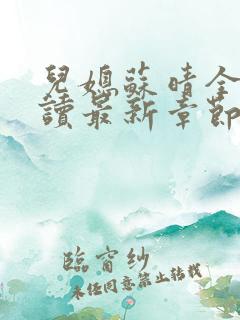 兒媳蘇晴全
讀最新章節
臨窗紗
未經同意禁止轉載